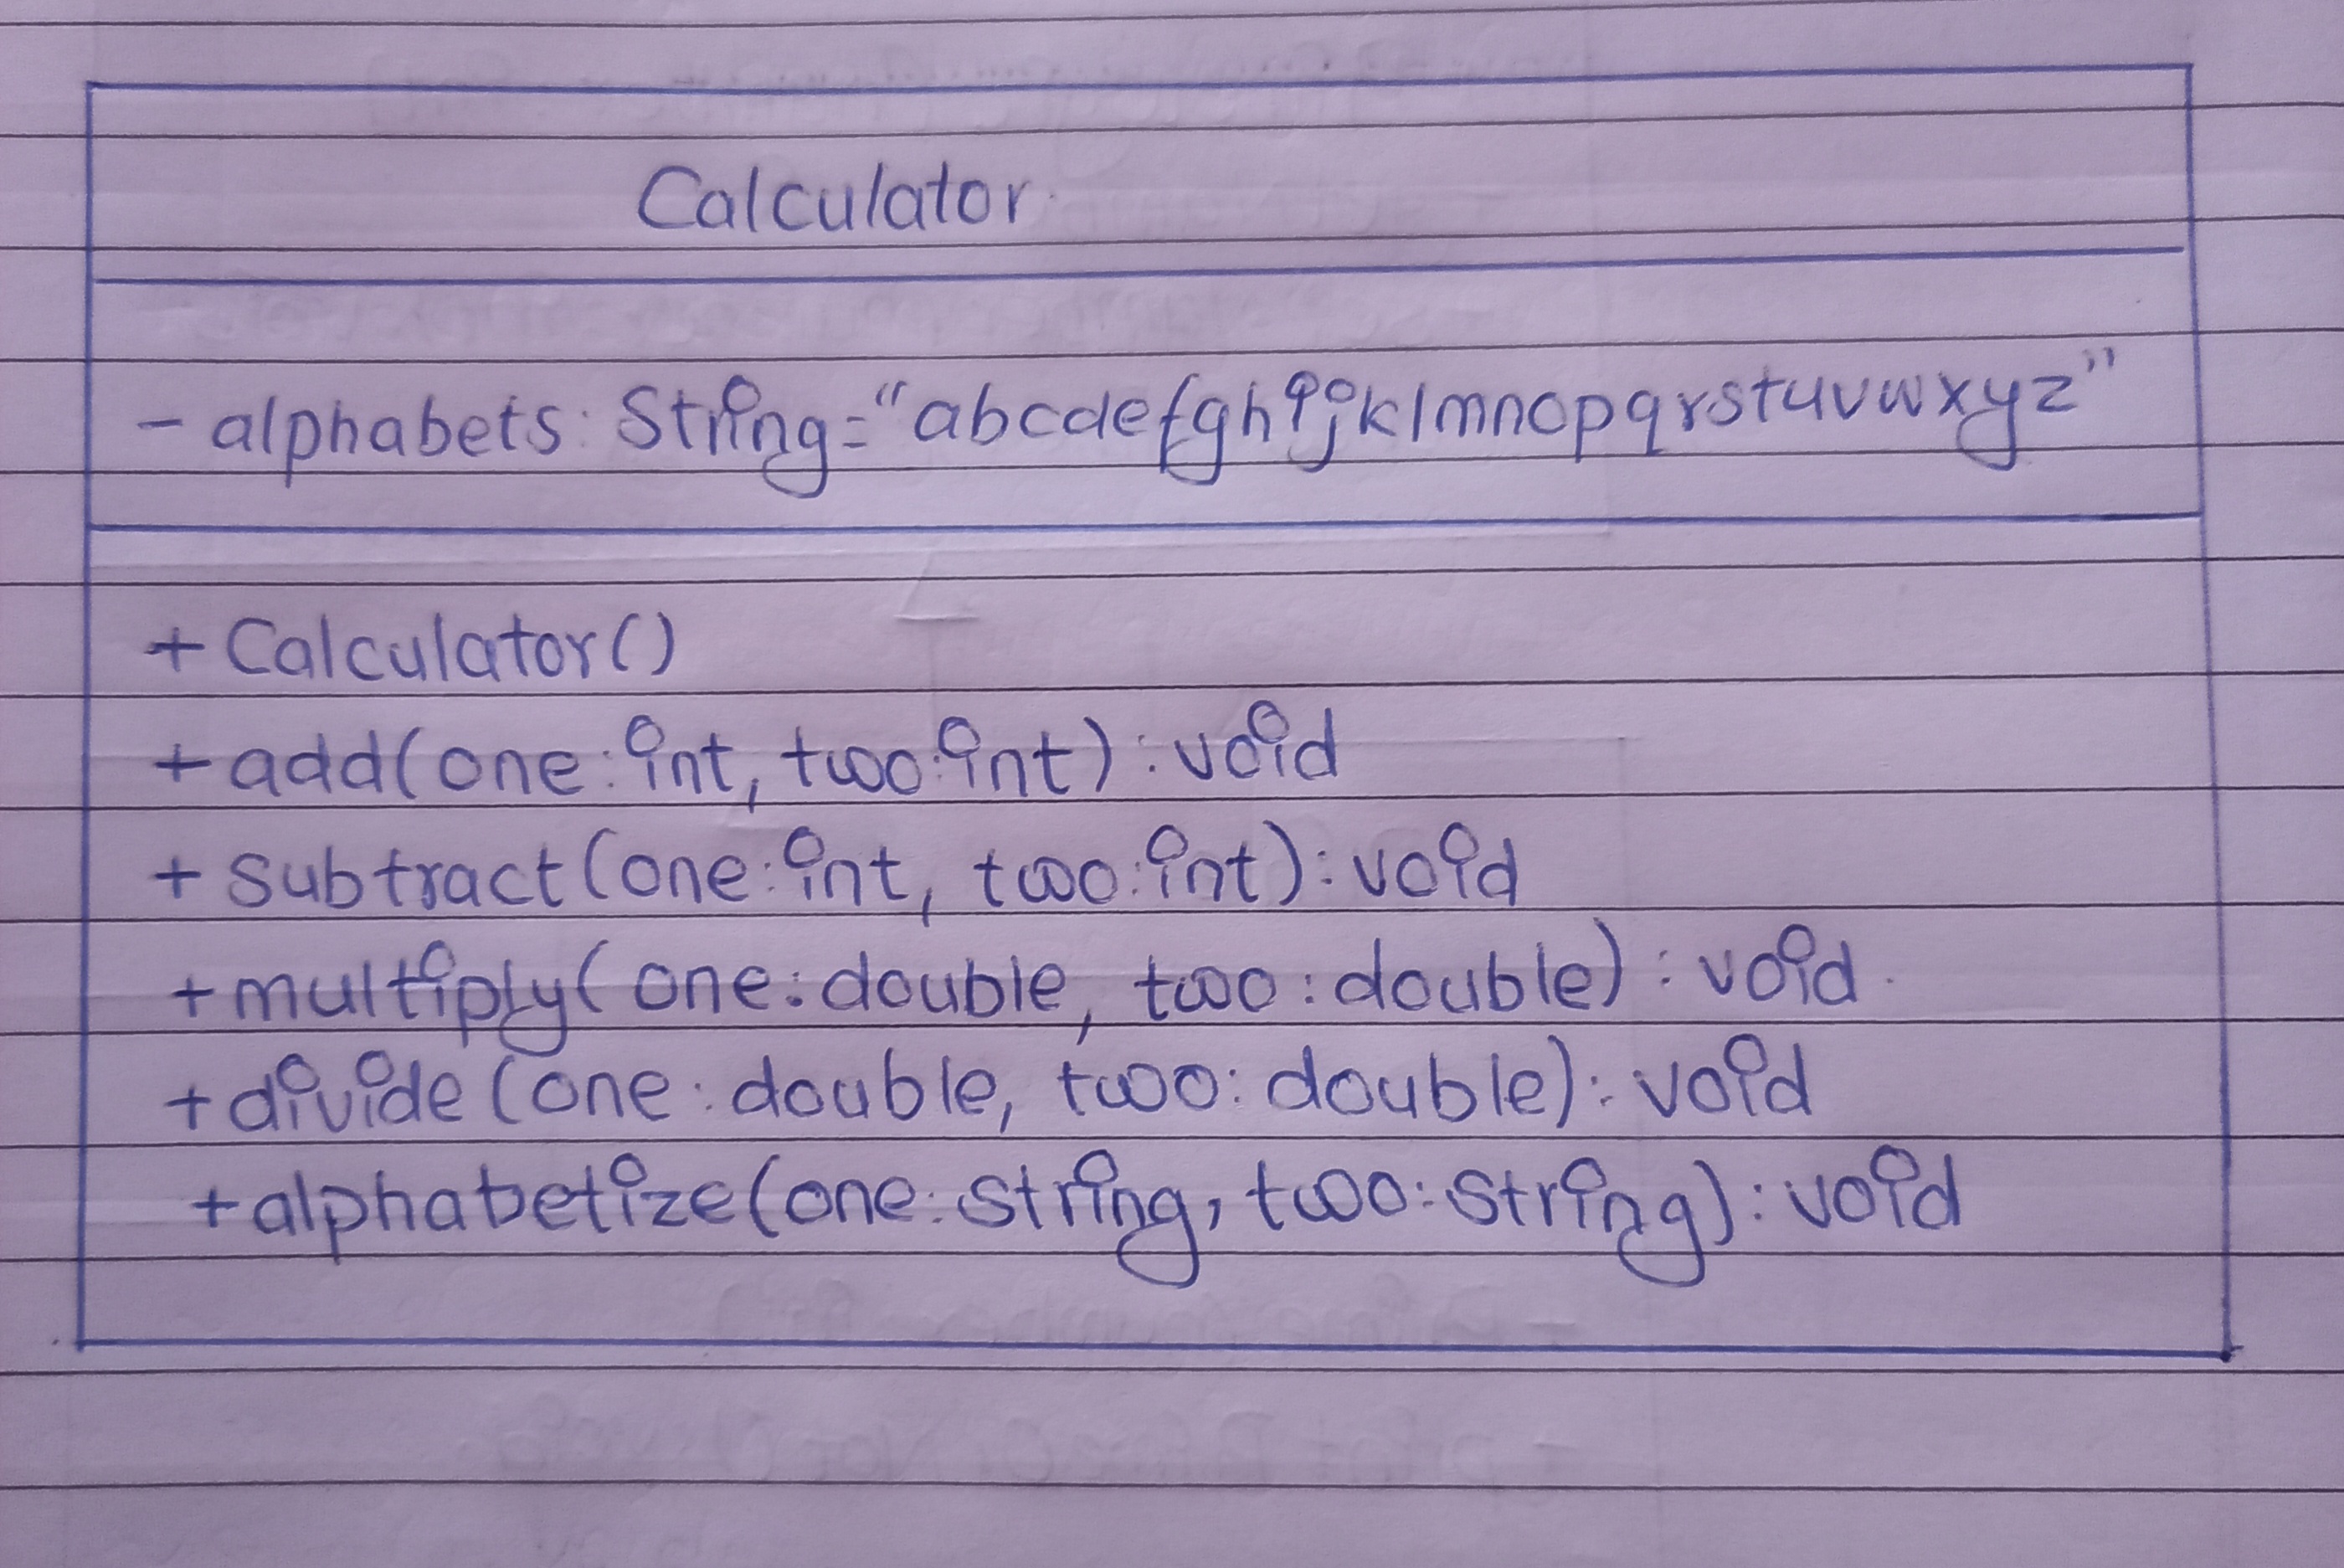 Calculator
- alphabets: String="abcdefghijklmnopqrstuvwxyz"
+ Calculator()
+ add(one: int, two: int) : void
+ subtract(one: int, two: int): void
+ multiply(one: double, two: double) : void
+ divide(one: double, two: double): void
+ alphabetize(one: string, two: string): void